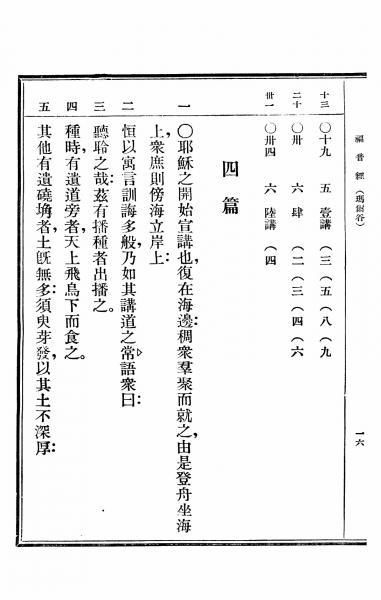 福音經 (瑪爾谷) 一六
十三 〇十九 五 壹講 (三 (五 (八 (九
二十 〇卅 六 肆 (二 (三 (四 (六
卅一 〇卅四 六 陸講 (四
四篇
一 〇耶穌之開始宣講也,復在海邊:稠衆羣聚而就之,由是登舟坐海
上,衆庶則傍海立岸上:
二 恒以寓言訓誨多般,乃如其講道之常語衆曰:
三 聽聆之哉:茲有播種者出播之。
四 種時有遺道旁者,天上飛鳥下而食之。
五 其他有遺磽埆者,土旣無多:須臾芽發,以其土不深厚: